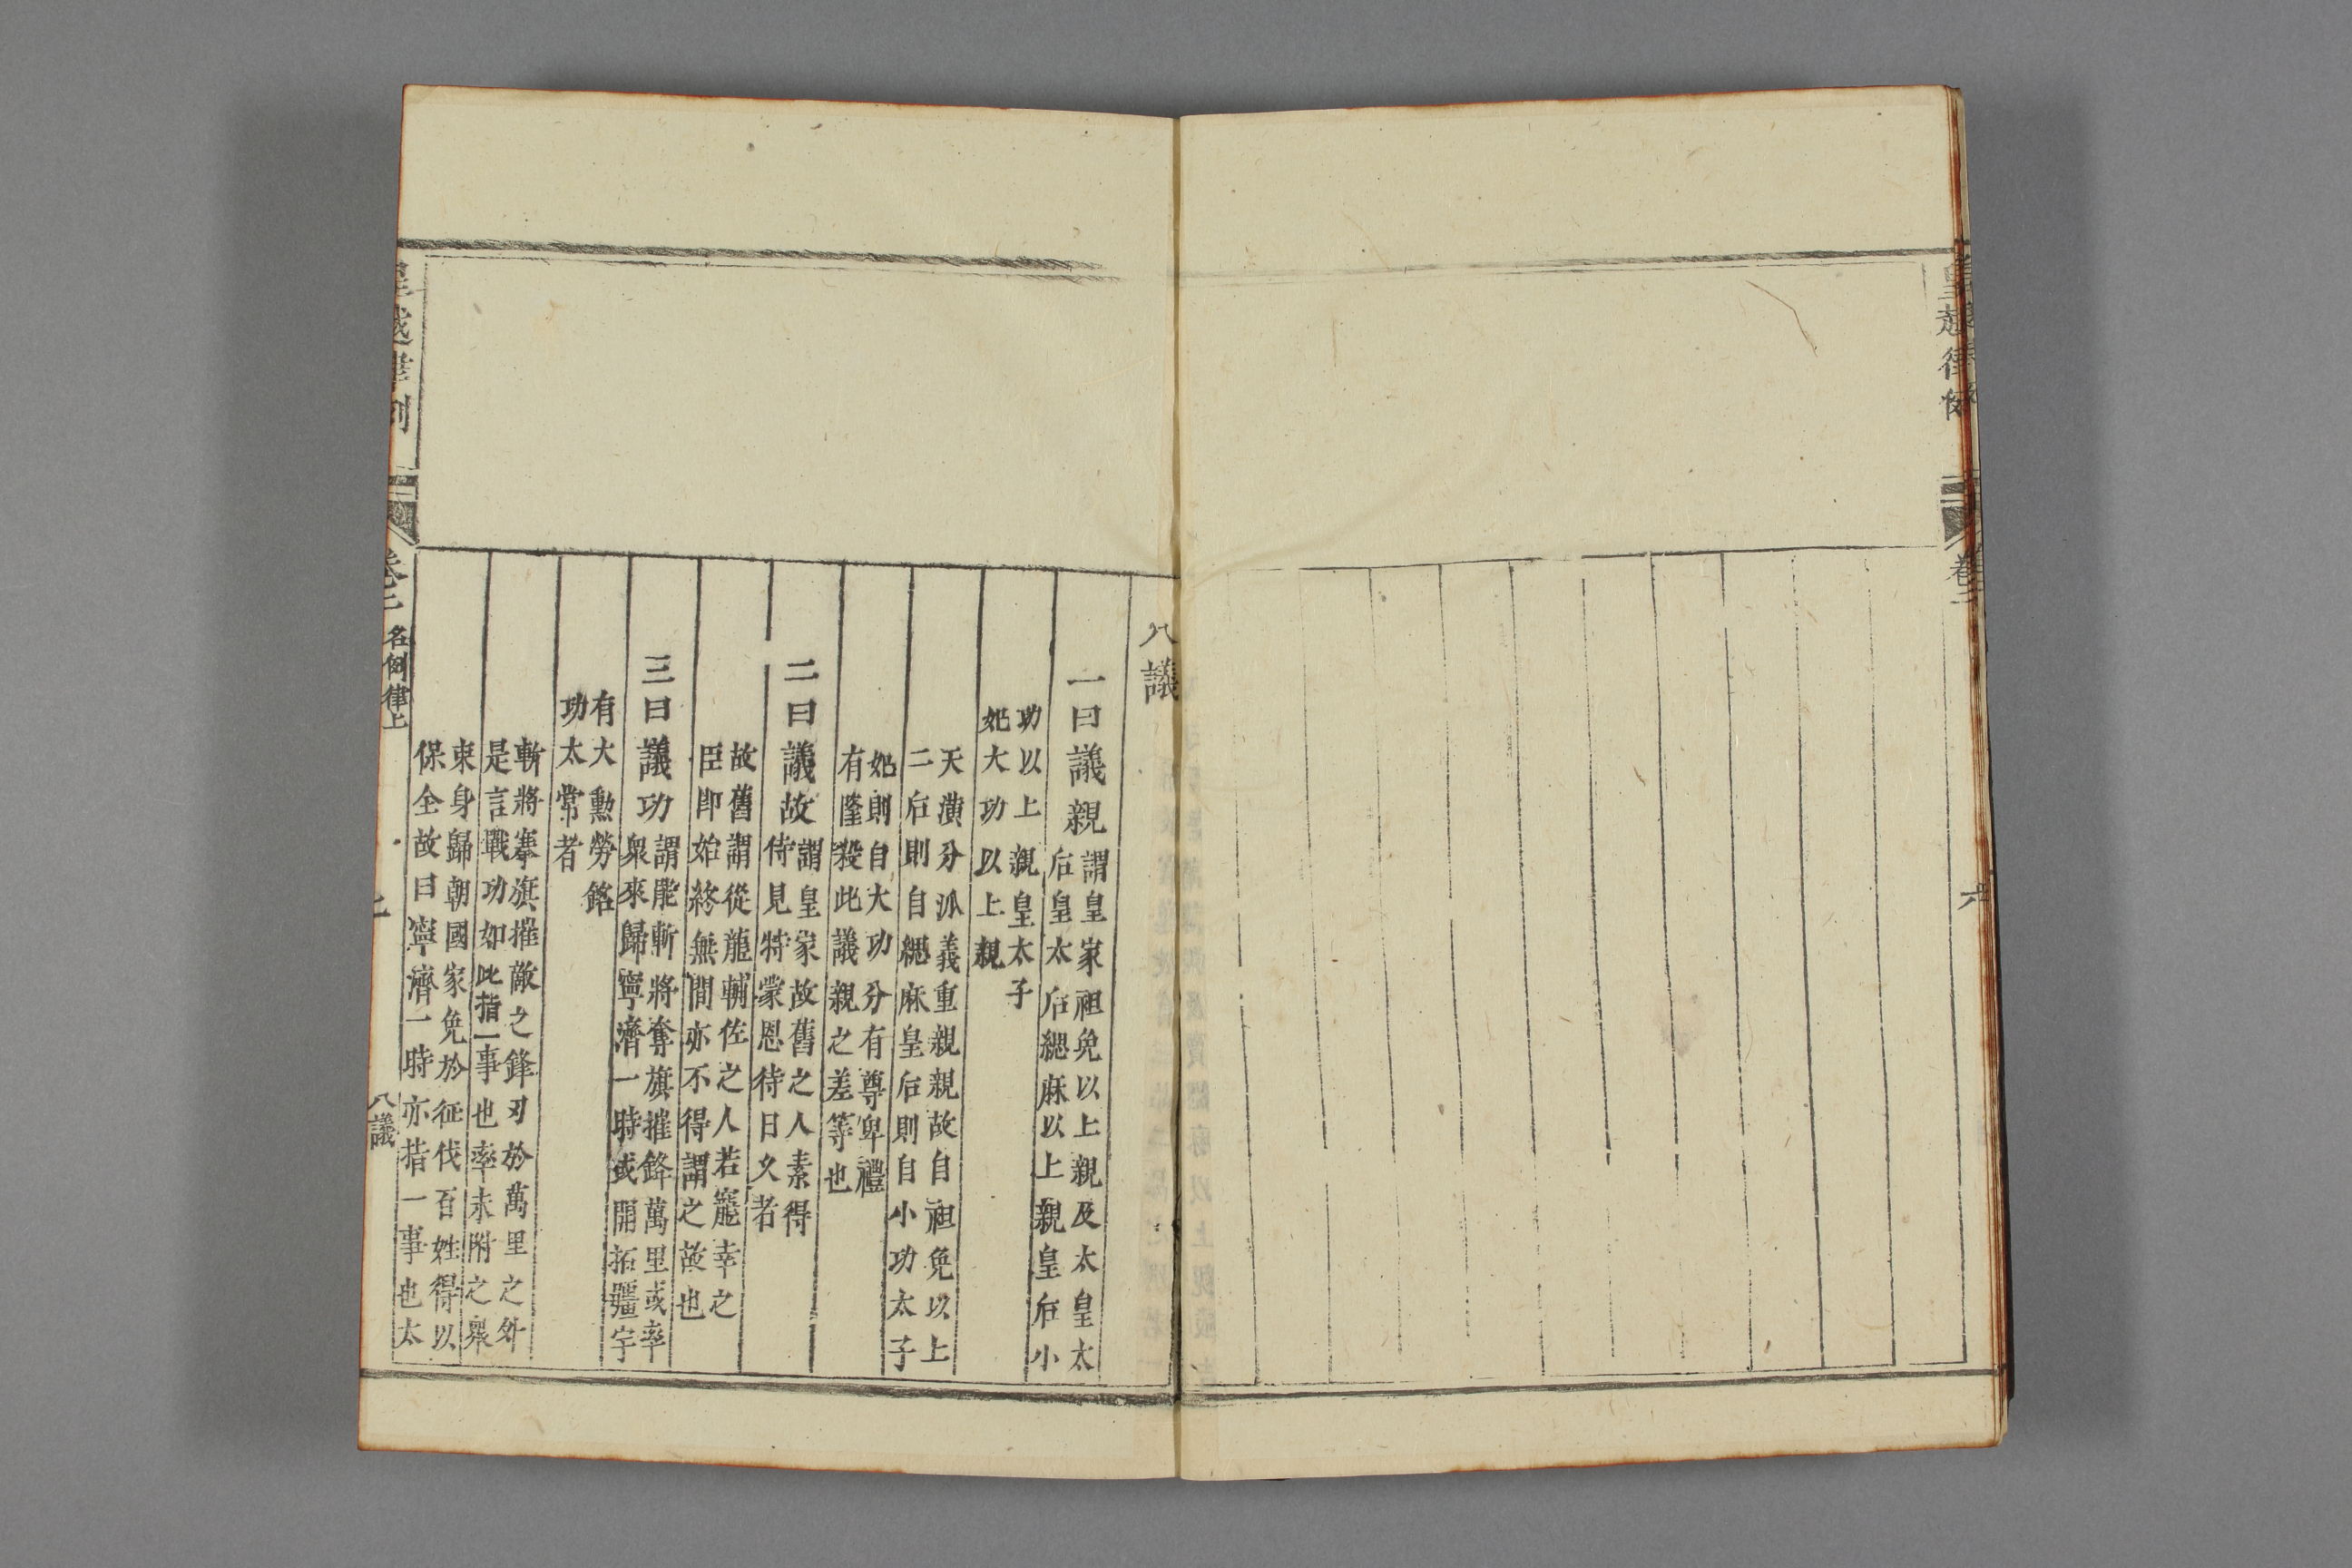 皇越律例
卷二
六
八議
一曰議親謂皇家袒免以上親及太皇太
后皇太后緦麻以上親皇后小
功以上親皇太子
妃大功以上親
天潢分派義重親親故自袒免以上
二后則自緦麻皇后則自小功太子
妃則自大功分有尊卑禮
有隆殺此議親之差等也
二曰議故謂皇家故舊之人素得
侍見特蒙恩待日久者
故舊謂從龍輔佐之人若寵幸之
臣即始終無間亦不得謂之故也
三曰議功謂能斬將奪旗摧鋒萬里或率
眾來歸寧濟一時或開拓疆宇
有大勳勞銘
功太常者
斬將搴旗摧敵之鋒刃於萬里之外
是言戰功如此指一事也率未附之眾
束身歸朝國家免於征伐百姓得以
保全故曰寧濟一時亦指一事也太
皇越律例
卷二
名例律上
七
八議